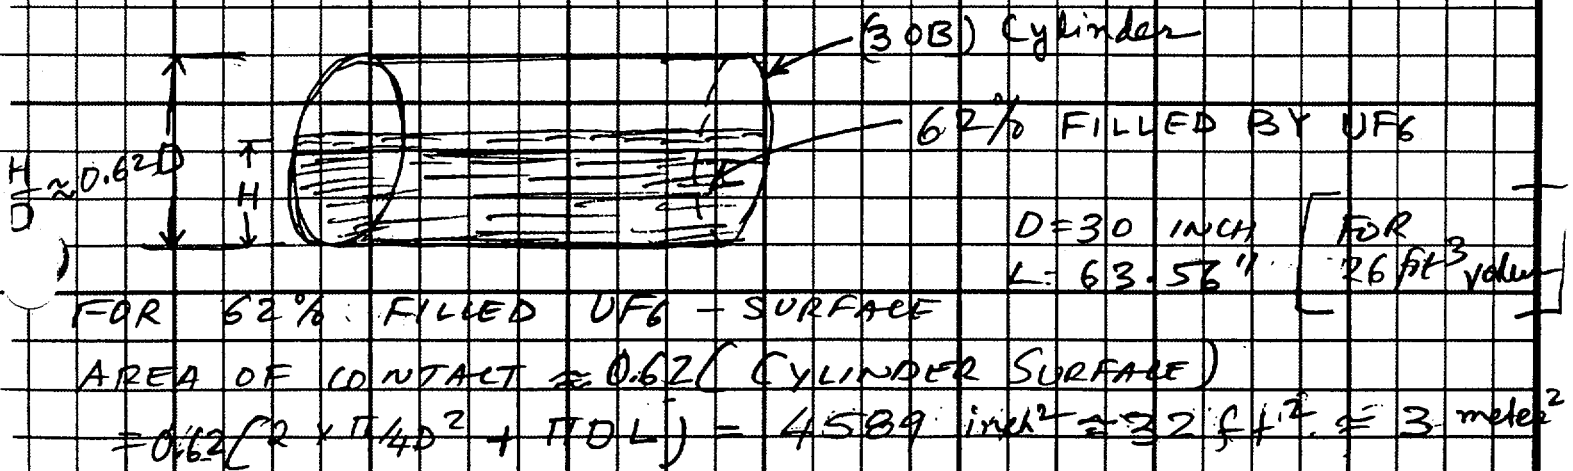 (30B) Cylinder
62% FILLED BY UF6
H/D ≈ 0.62
D
H
D = 30 INCH
L = 63.56"
[FOR
26 ft³ volum]
FOR 62% FILLED UF6 - SURFACE
AREA OF CONTACT ≈ 0.62 (CYLINDER SURFACE)
= 0.62 (2 x π/4 D² + π D L) = 4589 inch² ≈ 32 ft². ≈ 3 meter²